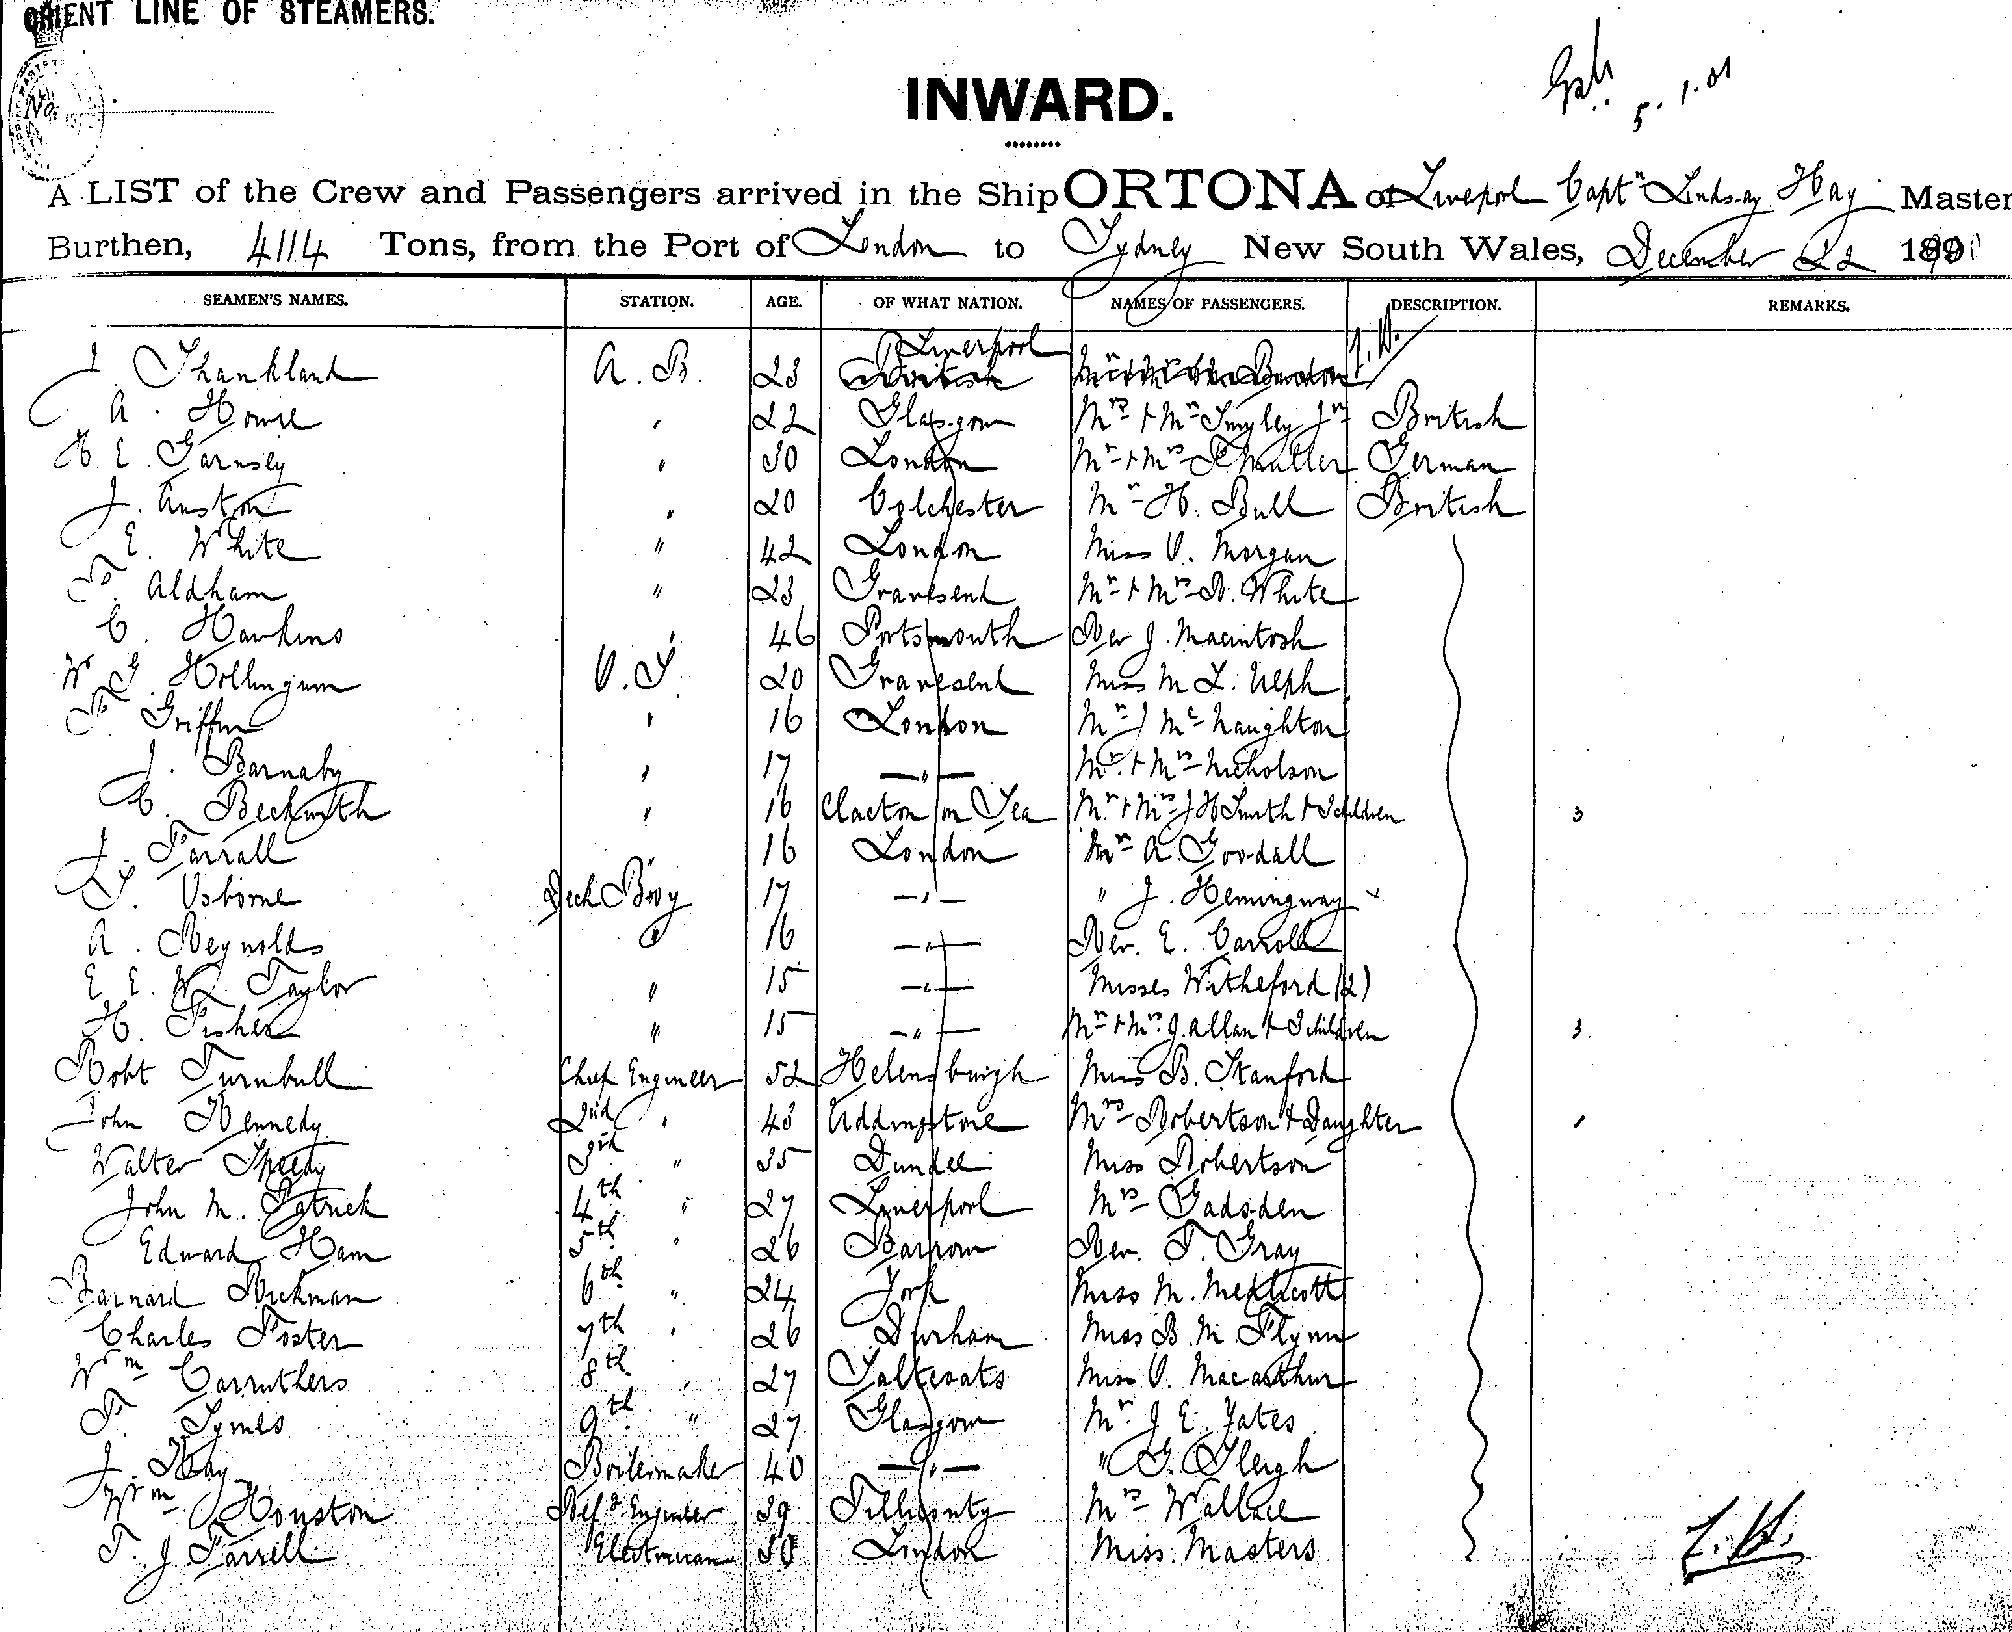 ORIENT LINE OF STEAMERS.
No.
INWARD.
5.1.01
A LIST of the Crew and Passengers arrived in the Ship ORTONA of Liverpol Captn Lindsay Hay Master
Burthen, 4114 Tons, from the Port of London to Sydney New South Wales, December 22
SEAMEN'S NAMES. STATION. AGE. OF WHAT NATION. NAMES OF PASSENGERS. DESCRIPTION. REMARKS.
Liverpool
J. Shankland A. B. 23 British
A. Howie " 22 Glasgow Mrs + Mr Smyley Jnr British
H E. Garnsey " 30 London Mr + Mrs German
J. Auston " 20 Colchester Mr H. Bull British
E. White " 42 London Miss V. Morgan
Aldham " 23 Gravesend Mr + Mrs White
C. Hawkins " 46 Portsmouth Rev J. Macintosh
W G. Hollingum O.S. 20 Gravesend Miss M L.
F. Griffin " 16 London Mr J McNaughton
J. Barnaby " 17 —"— Mr + Mrs Nicholson
C. Beckwith " 16 Clacton on Sea Mr + Mrs J H Smith + 3 children 3
J. Farrall " 16 London Mr A. Goodall
S. Osborne Deck Boy 17 —"— " J. Hemingway
A. Reynolds " 16 —"— Rev. E. Carroll
E E. W. Taylor " 15 —"— Misses Witheford (2)
H. Fisher " 15 —"— Mr + Mrs J. Allan + 3 children 3
Robt Turnbull Chief Engineer 52 Helensburgh Miss B. Stanford
John Kennedy 2nd " 43 Uddingstone Mrs Robertson + Daughter 1
Walter Speedy 3rd " 35 Dundee Miss Robertson
John M. Patrick 4th " 27 Liverpool Mrs Gadsden
Edward Ham 5th " 26 Barrow Rev. T. Gray
Barnard Rickman 6th " 24 York Miss M.
Charles Foster 7th " 26 Durham Miss B. M. Flynn
Wm Carruthers 8th " 27 Saltcoats Miss V. Macarthur
Symes 9th " 27 Glasgow Mr. J E. Yates
J. Hay Boilermaker 40 —"— " G. Sleigh
Wm Houston Refg Engineer 39 Mrs Wallace
T. J Farrell Electrician 30 London Miss. Masters
L.H.